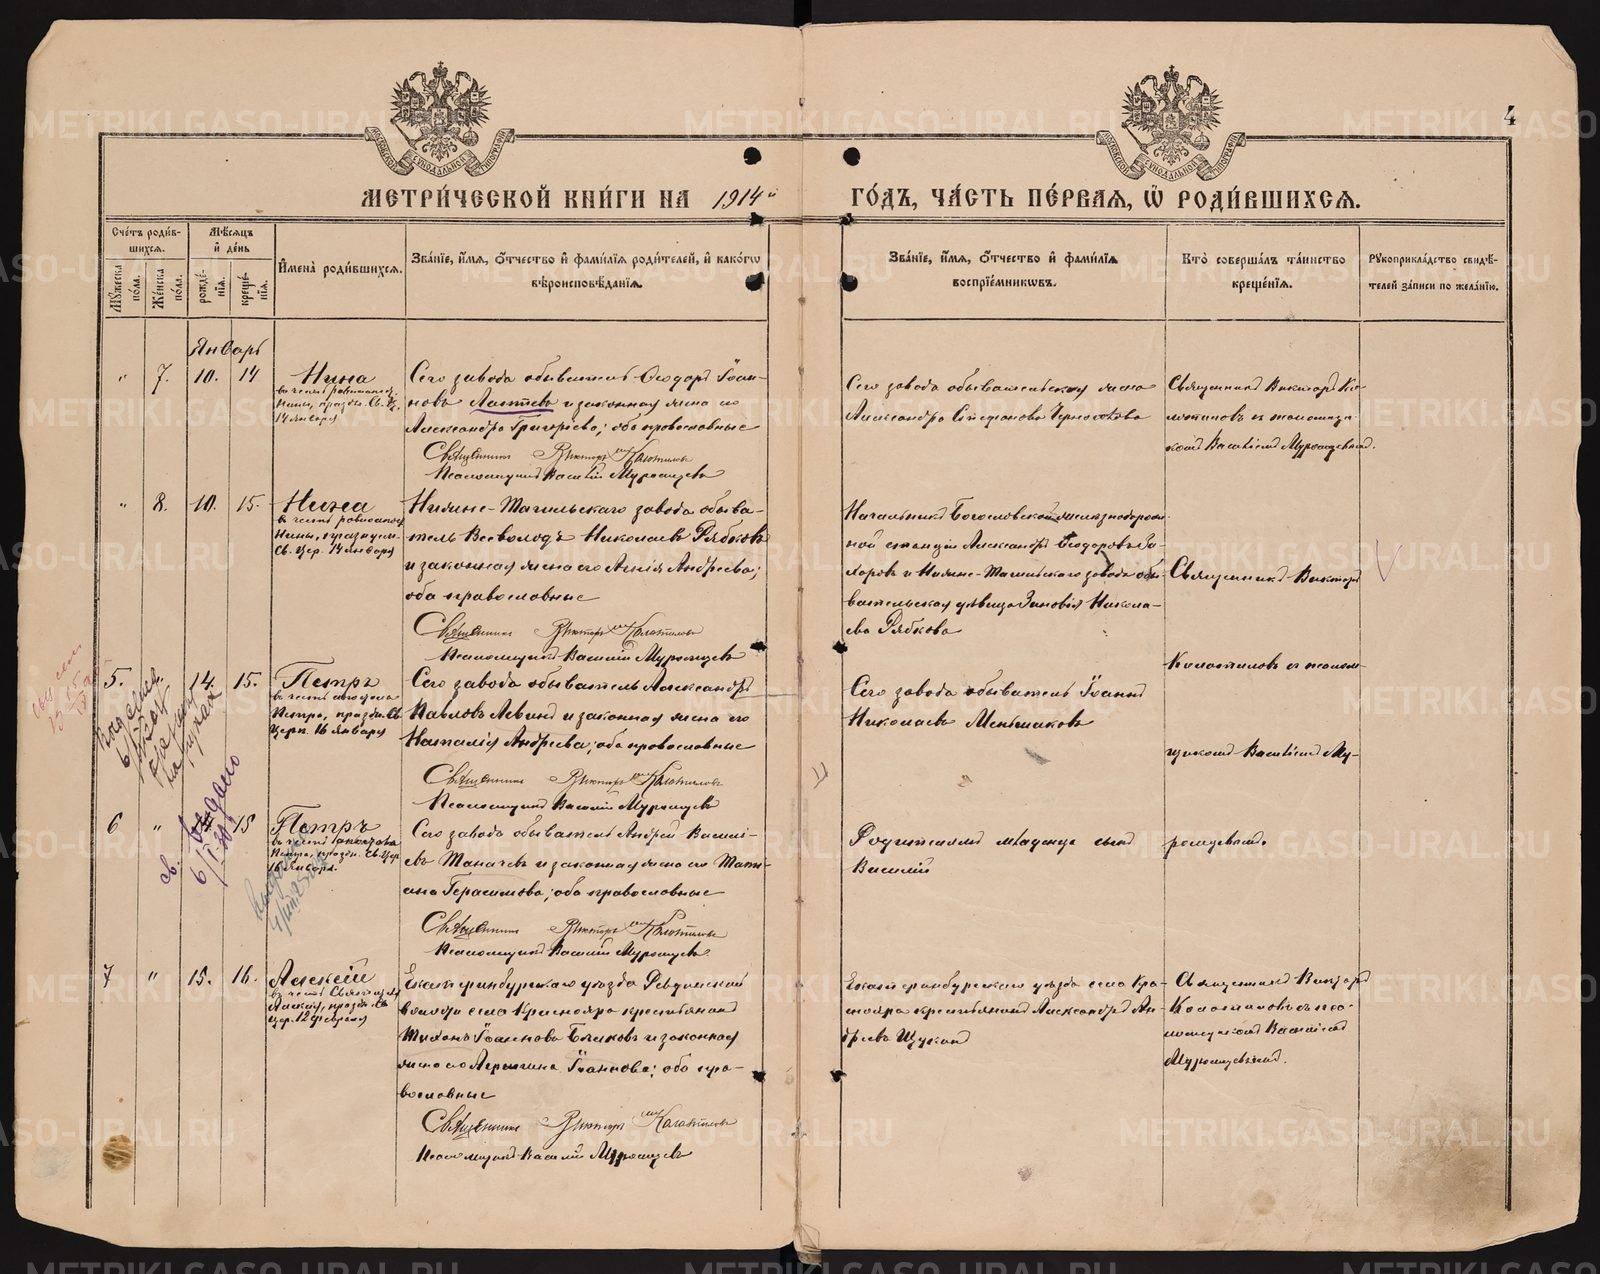 4
МЕТРИ́ЧЕСКОЙ КНИ́ГИ НА 1914й ГО́ДЪ, ЧА́СТЬ ПЕ́РВАЯ, Ѿ РОДИ́ВШИХСЯ.
Сче́тъ роди́вшихся.
Му́жеска по́ла.
Же́нска по́ла.
Мѣ́сяцъ и҆ де́нь
рожде́нїя.
креще́нїя.
И҆мена̀ роди́вшихся.
Зва́нїе, и҆́мя, ѻ҆́тчество и҆ фами́лїя роди́телей, и҆ како́гѡ
вѣроисповѣ́данїя.
Зва́нїе, и҆́мя, ѻ҆́тчество и҆ фами́лїя
воспрїе́мникѡвъ.
Кто̀ соверша́лъ та́инство
креще́нїя.
Рꙋкоприкла́дство свидѣ́-
телей за́писи по жела́нїю.
Январь
" 7. 10. 14
Нина
14 января
Сего завода обыватель Ѳеодоръ Іоан-
новъ и законная жена его
Александра Григорьева; оба православные
Священникъ Викторъ Колотиловъ
Псаломщикъ Василій Муромцевъ
Сего завода обывательская жена
Александра Стефанова
Священникъ Викторъ Ко-
лотиловъ съ псаломщи-
комъ Василіемъ Муромцевымъ.
" 8. 10. 15.
Нина
Св. Цер. 14 января
Нижне-Тагильскаго завода обыва-
тель Всеволодъ Николаевъ Рябковъ
и законная жена его Агнія Андреева;
оба православные
Священникъ Викторъ Колотиловъ
Псаломщикъ Василій Муромцевъ
Начальникъ Богословской железнодорож-
ной станціи Александръ Ѳеодоровъ За-
харовъ и Нижне-Тагильскаго завода обы-
вательская дѣвица Зиновія Никола-
ева Рябкова
Священникъ Викторъ
Колотиловъ съ псалом-
щикомъ Василіемъ Му-
ромцевымъ.
5. 14. 15.
Петръ
въ честь апостола
Петра, праздн. Св.
Церк. 16 января
Сего завода обыватель Александръ
Павловъ Левинъ и законная жена его
Наталія Андреева; оба православные
Священникъ Викторъ Колотиловъ
Псаломщикъ Василій Муромцевъ
Сего завода обыватель Іоаннъ
Николаевъ Меньшаковъ
6 " 15
Петръ
въ честь апостола
Петра, праздн. Св. Цер.
16 января.
Сего завода обыватель Андрей Василі-
евъ и законная жена его Тати-
ана Герасимова; оба православные
Священникъ Викторъ Колотиловъ
Псаломщикъ Василій Муромцевъ
Родителей младенца сынъ
Василій
7 " 15. 16.
Алексій
въ честь Святителя
Алексія, праздн. Св.
Цер. 12 февраля
Екатеринбургскаго уѣзда Ревдинской
волости села Краснояра крестьянинъ
Тихонъ Іоанновъ и законная
жена его Іоаннова; оба пра-
вославные
Священникъ Викторъ Колотиловъ
Псаломщикъ Василій Муромцевъ
Екатеринбургскаго уѣзда села Кра-
снояра крестьянинъ Александръ Ан-
дреевъ Щукинъ
Священникъ Викторъ
Колотиловъ съ пса-
ломщикомъ Василіемъ
Муромцевымъ.
METRIKI.GASO-URAL.RU